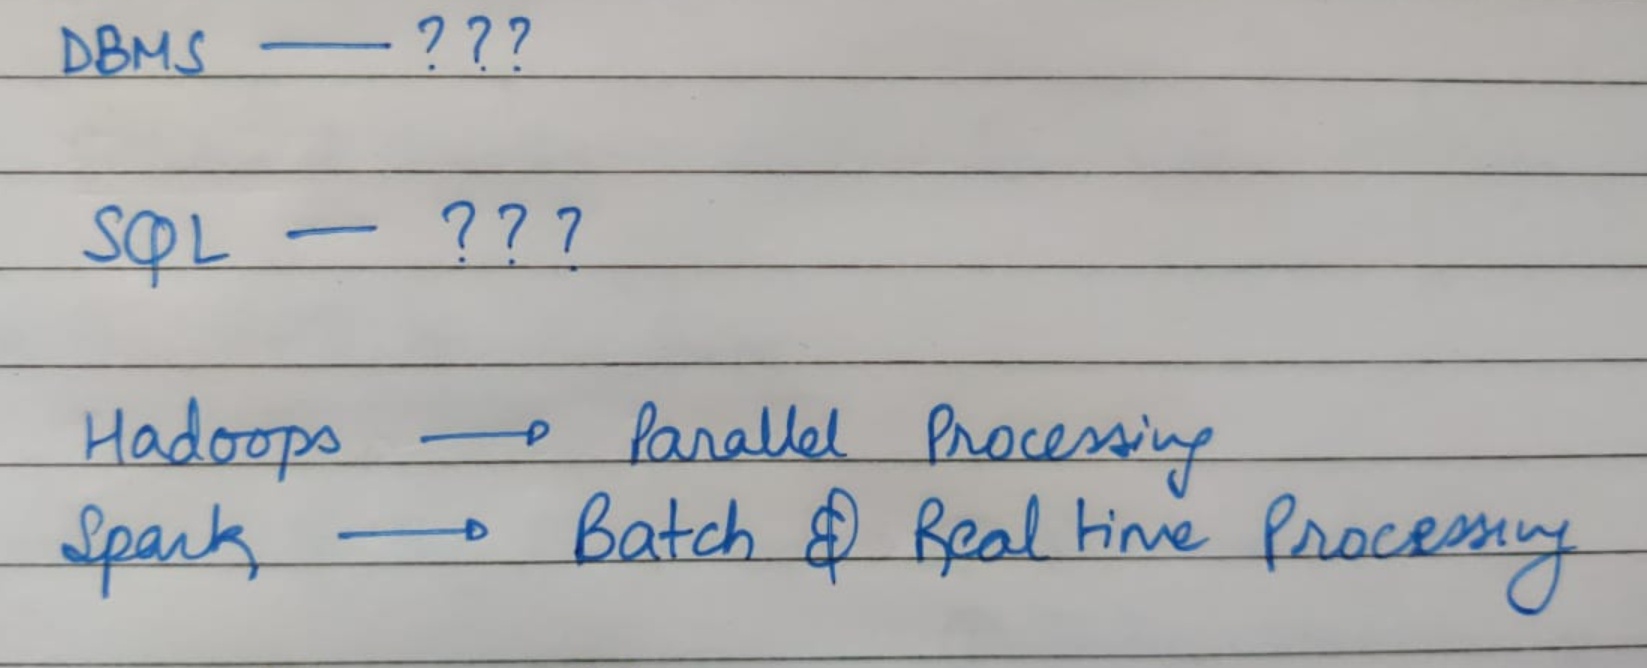 DBMS — ???
SQL — ???
Hadoops → Parallel Processing
Spark → Batch & Real time Processing